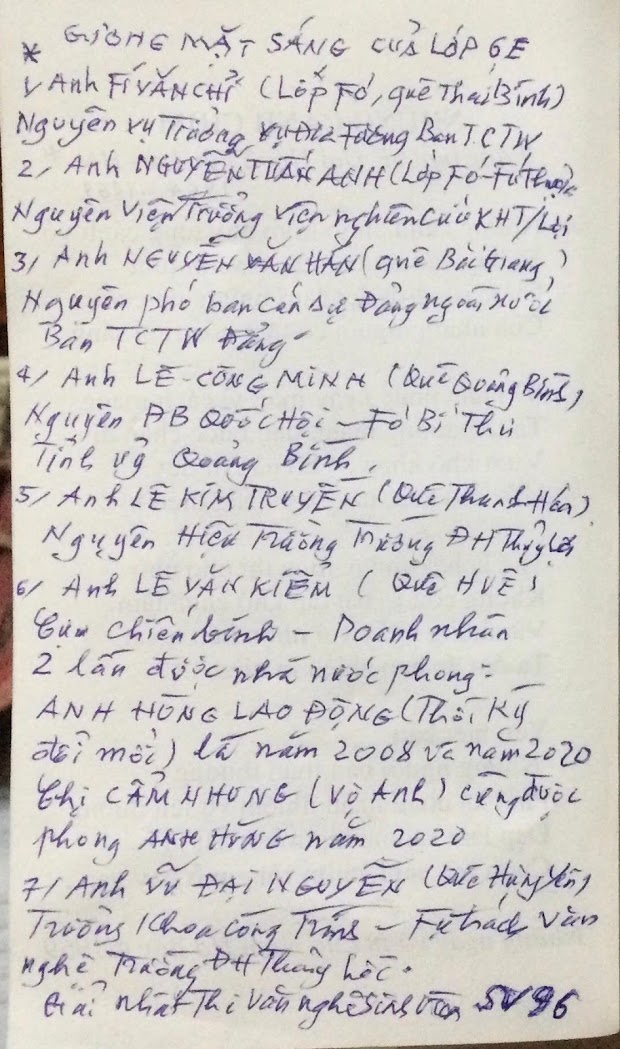 * GƯƠNG MẶT SÁNG CỦA LỚP 6E
1/ Anh FÍ VĂN CHỈ (Lớp Fó, quê Thái Bình)
Nguyên Vụ Trưởng Vụ Địa Fương Ban TCTW
2/ Anh NGUYỄN TUẤN ANH (Lớp Fó - Fú Thọ)
Nguyên Viện Trưởng Viện nghiên cứu KHT/Lợi
3/ Anh NGUYỄN VĂN HÂN (quê Bắc Giang)
Nguyên phó ban cán sự Đảng ngoài nước
Ban TCTW Đảng
4/ Anh LÊ CÔNG MINH (Quê Quảng Bình)
Nguyên ĐB Quốc Hội - Fó Bí Thư
Tỉnh ủy Quảng Bình.
5/ Anh LÊ KIM TRUYỀN (Quê Thanh Hóa)
Nguyên Hiệu Trưởng Trường ĐH Thủy Lợi
6/ Anh LÊ VĂN KIỂM (Quê HUẾ)
Cựu chiến binh - Doanh nhân
2 lần được nhà nước phong -
ANH HÙNG LAO ĐỘNG (Thời Kỳ
đổi mới) là năm 2008 và năm 2020
Chị CẨM NHUNG (Vợ Anh) cũng được
phong ANH HÙNG năm 2020
7/ Anh VŨ ĐẠI NGUYỄN (Quê Hưng Yên)
Trưởng Khoa Công Trình - Fụ trách Văn
nghệ Trường ĐH Thủy Lợi.
Giải nhất Thi Văn nghệ Sinh Viên SV 96